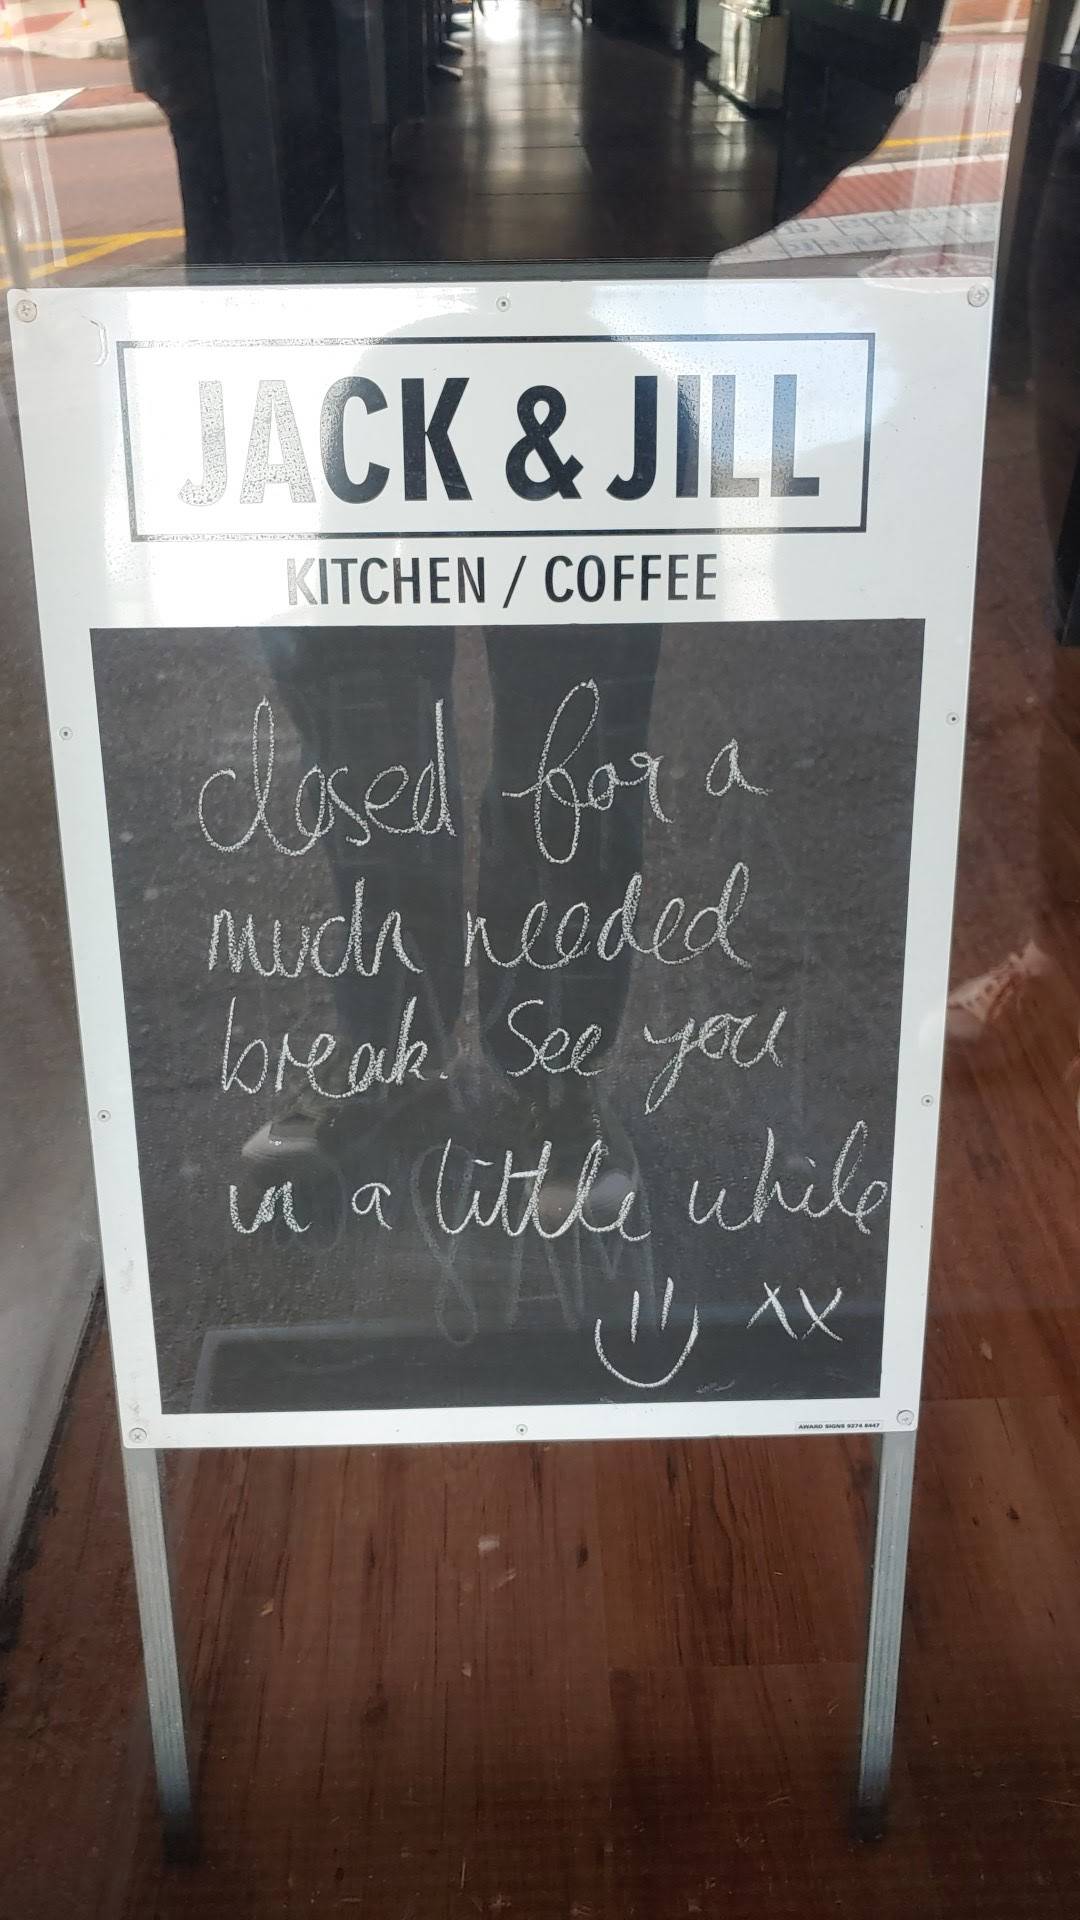 JACK & JILL
KITCHEN / COFFEE
closed for a
much needed
break. See you
in a little while
xx
AWARD SIGNS 9274 8447